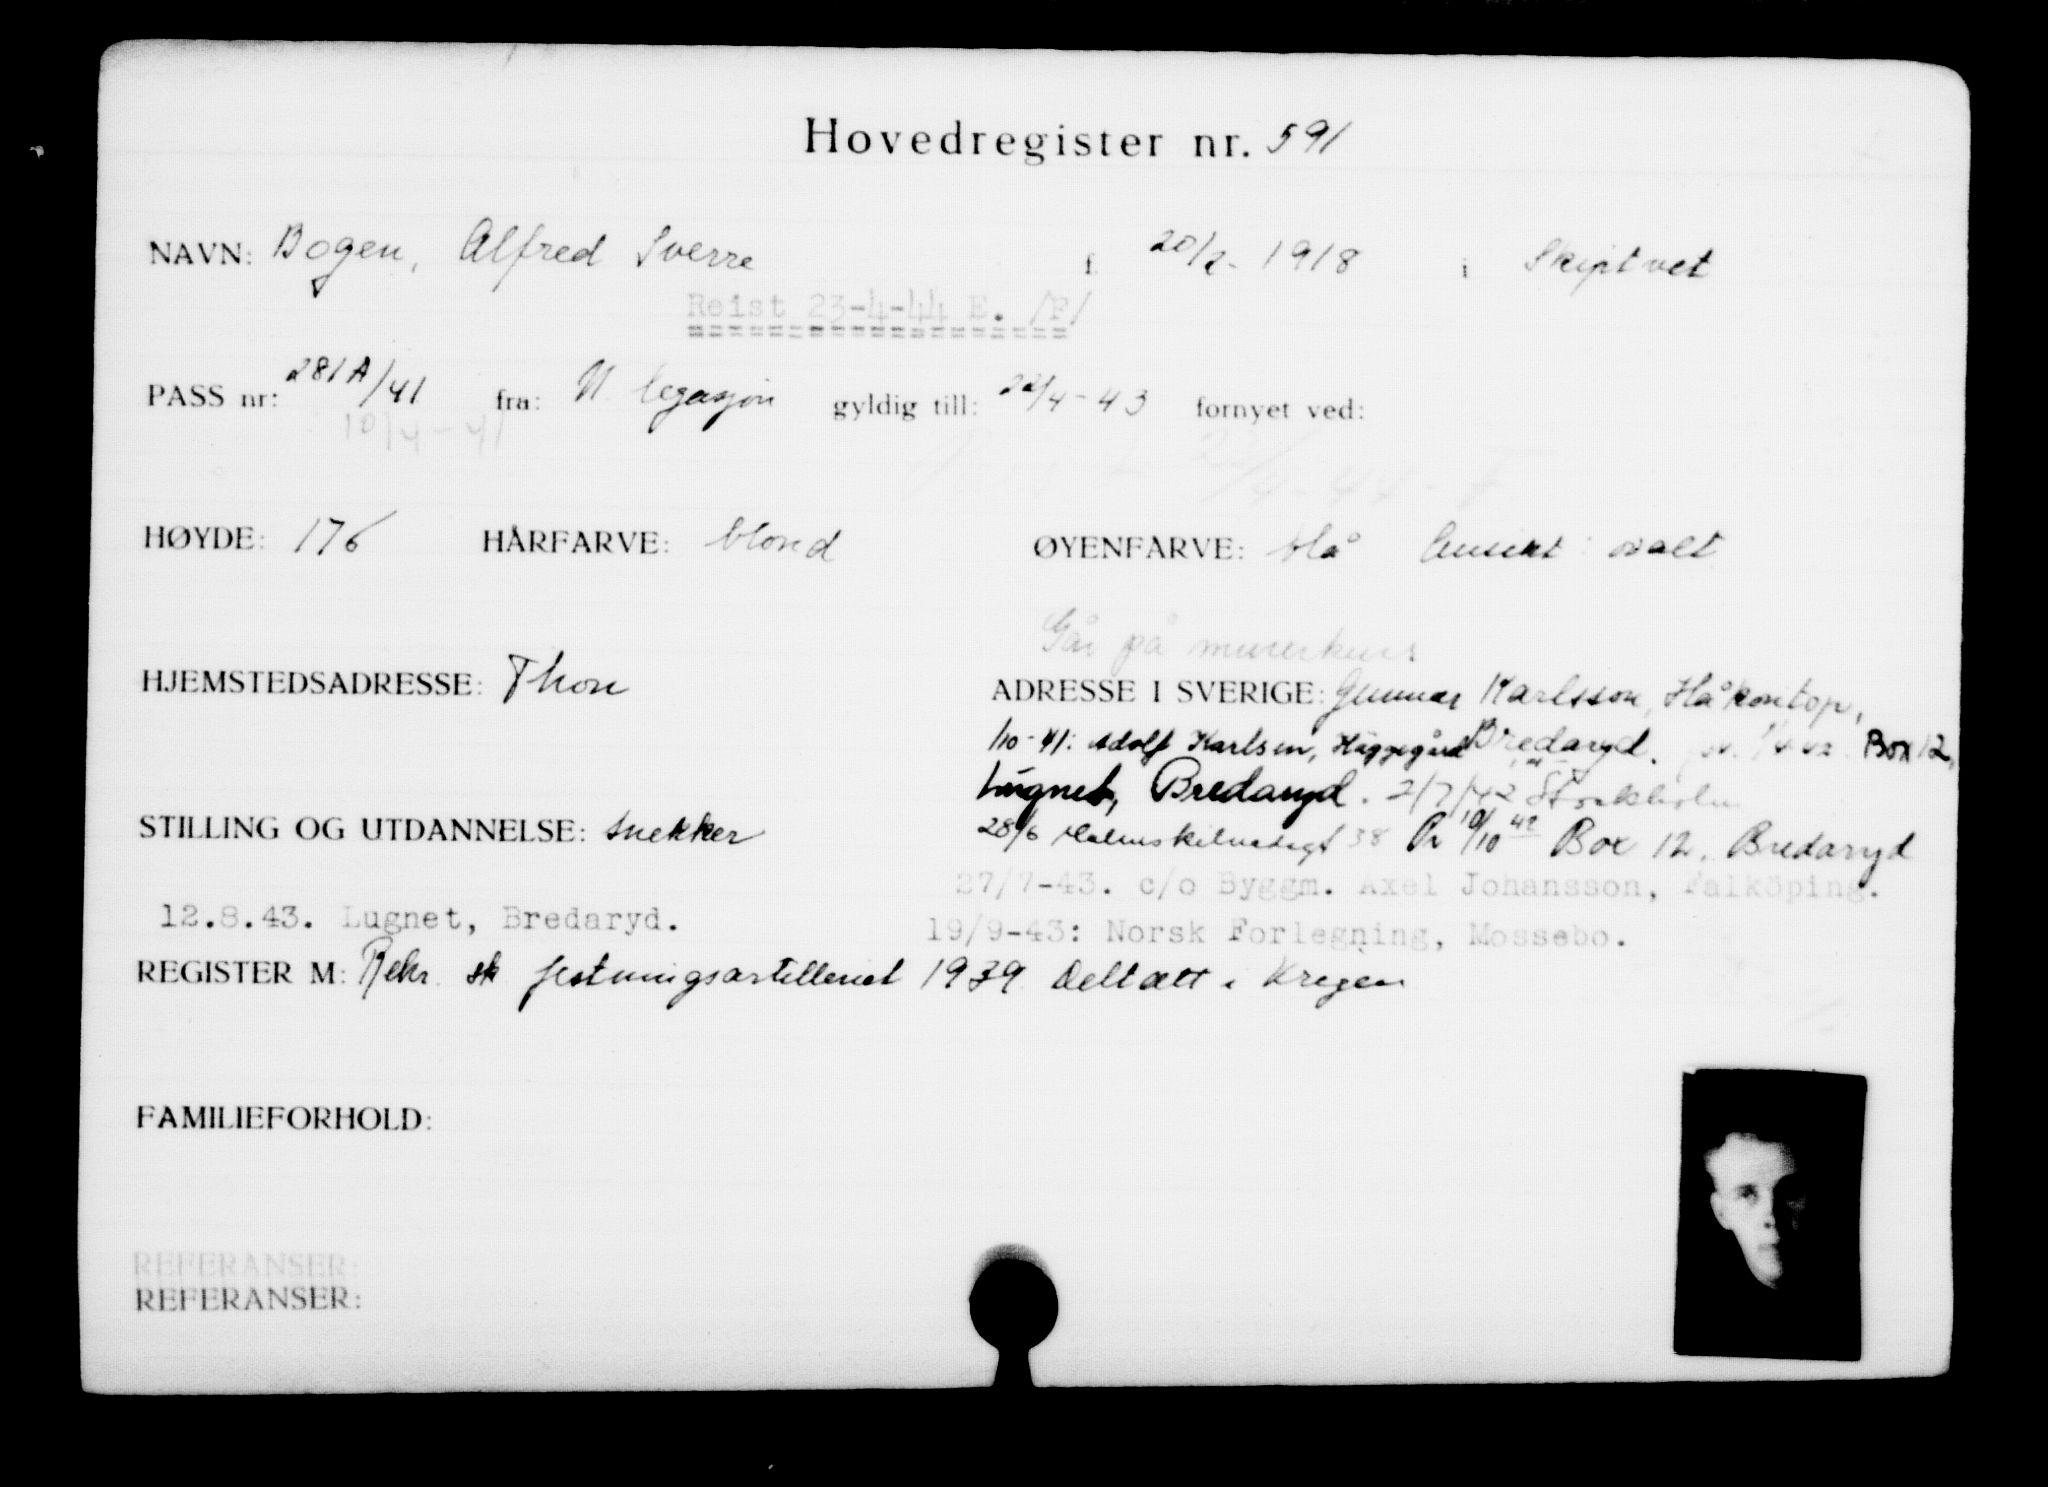 Hovedregister nr. 591
NAVN: Bogen, Alfred Sverre f. 20/2-1918 i Skiptvet
Reist 23-4-44 E. /F/
PASS nr: 281A/41 fra: N. legasjon gyldig till: 22/4-43 fornyet ved:
10/4-41 22/4-44-F
HØYDE: 176 HÅRFARVE: blond ØYENFARVE: blå Ansikt: ovalt
Går på murerkurs
HJEMSTEDSADRESSE: Thon ADRESSE I SVERIGE: Gunnar Karlsson, Håkentorp,
1/10-41: Adolf Karlsen, Häggegård Bredaryd. Box 12,
Lugnet, Bredaryd. 2/7/42 Stockholm
STILLING OG UTDANNELSE: snekker 28/6 Malmskilnadsgt 38 Pr 10/10 42 Box 12, Bredaryd
27/7-43. c/o Byggm. Axel Johansson, Falköping.
12.8.43. Lugnet, Bredaryd. 19/9-43: Norsk Forlegning, Mossebo.
REGISTER M: Rekr. sk festningsartilleriet 1939 Deltatt i Krigen
FAMILIEFORHOLD:
REFERANSER:
REFERANSER: